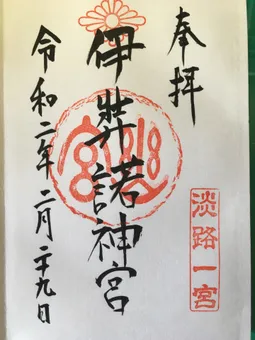 奉拝
淡路一宮
伊弉諾神宮
幽宮
令和二年二月二十九日